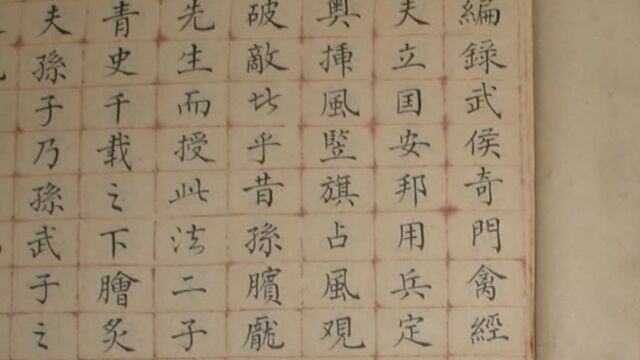 編錄武侯奇門禽經
夫立国安邦用兵定
奧挿風竪旗占風観
破敵此乎昔孫臏龐
先生而授此法二子
青史千載之下膾炙
夫孫子乃孫武子之